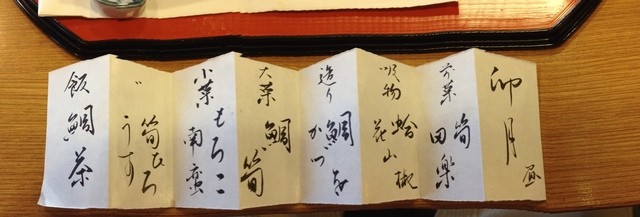 卯月 昼
前菜 筍 田楽
吸物 蛤 花山椒
造り 鯛 かつを
大菜 鯛 筍
小菜 もろこ 南蛮
〃 筍ひろうす
飯 鯛茶